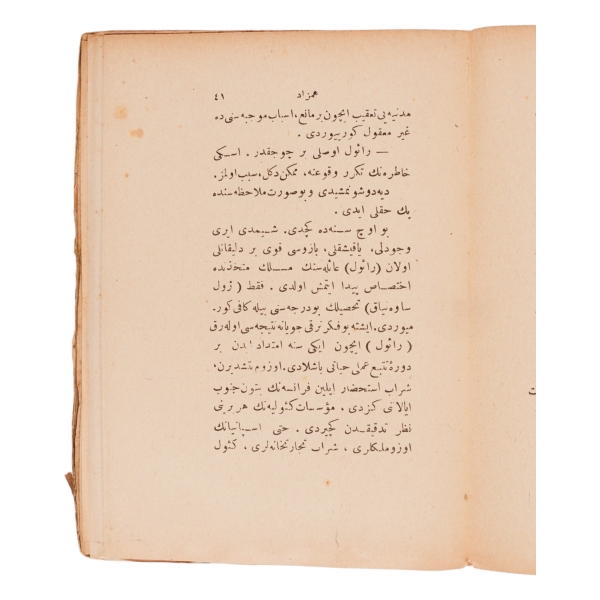 همزاد ٤١
مدنیه‌یی تعقیب ایچون بر مانع، اسباب موجبه‌سنی ده
غیر معقول کوریوردی .
— رائول اوصلی بر چوجقدر . اسکی
خاطره‌نك تکرر وقوعنه، ممکن دکل، سبب اولمز.
دیه دوشونمشیدی و بوصورت ملاحظه‌سنده
پك حقلی ایدی .
بو اوچ سنه‌ده کچدی. شیمدی ایری
وجودلی، یاقیشقلی، بازوسی قوی بر دلیقانلی
اولان (رائول) عائله‌سنك مسلك متخذنده
اختصاص پیدا ایتمش اولدی . فقط ( ژول
ساوه‌نیاق) تحصیلك بودرجه‌سنی بیله کافی کور.
میوردی. ایشته بو فکر ترقی جویانه نتیجه‌سی اوله‌رق
( رائول ) ایچون ایکی سنه امتداد ایدن بر
دورهٔ تتبع عملی حیاتی باشلادی. اوزوم یتشدیرن،
شراب استحضار ایلین فرانسه‌نك بتون جنوب
ایالاتنی کزدی ، مؤسسات کئولیه‌نك هر برینی
نظر تدقیقدن کچیردی . حتی اسپانیانك
اوزوملکلری ، شراب تجارتخانه‌لری ، کئول